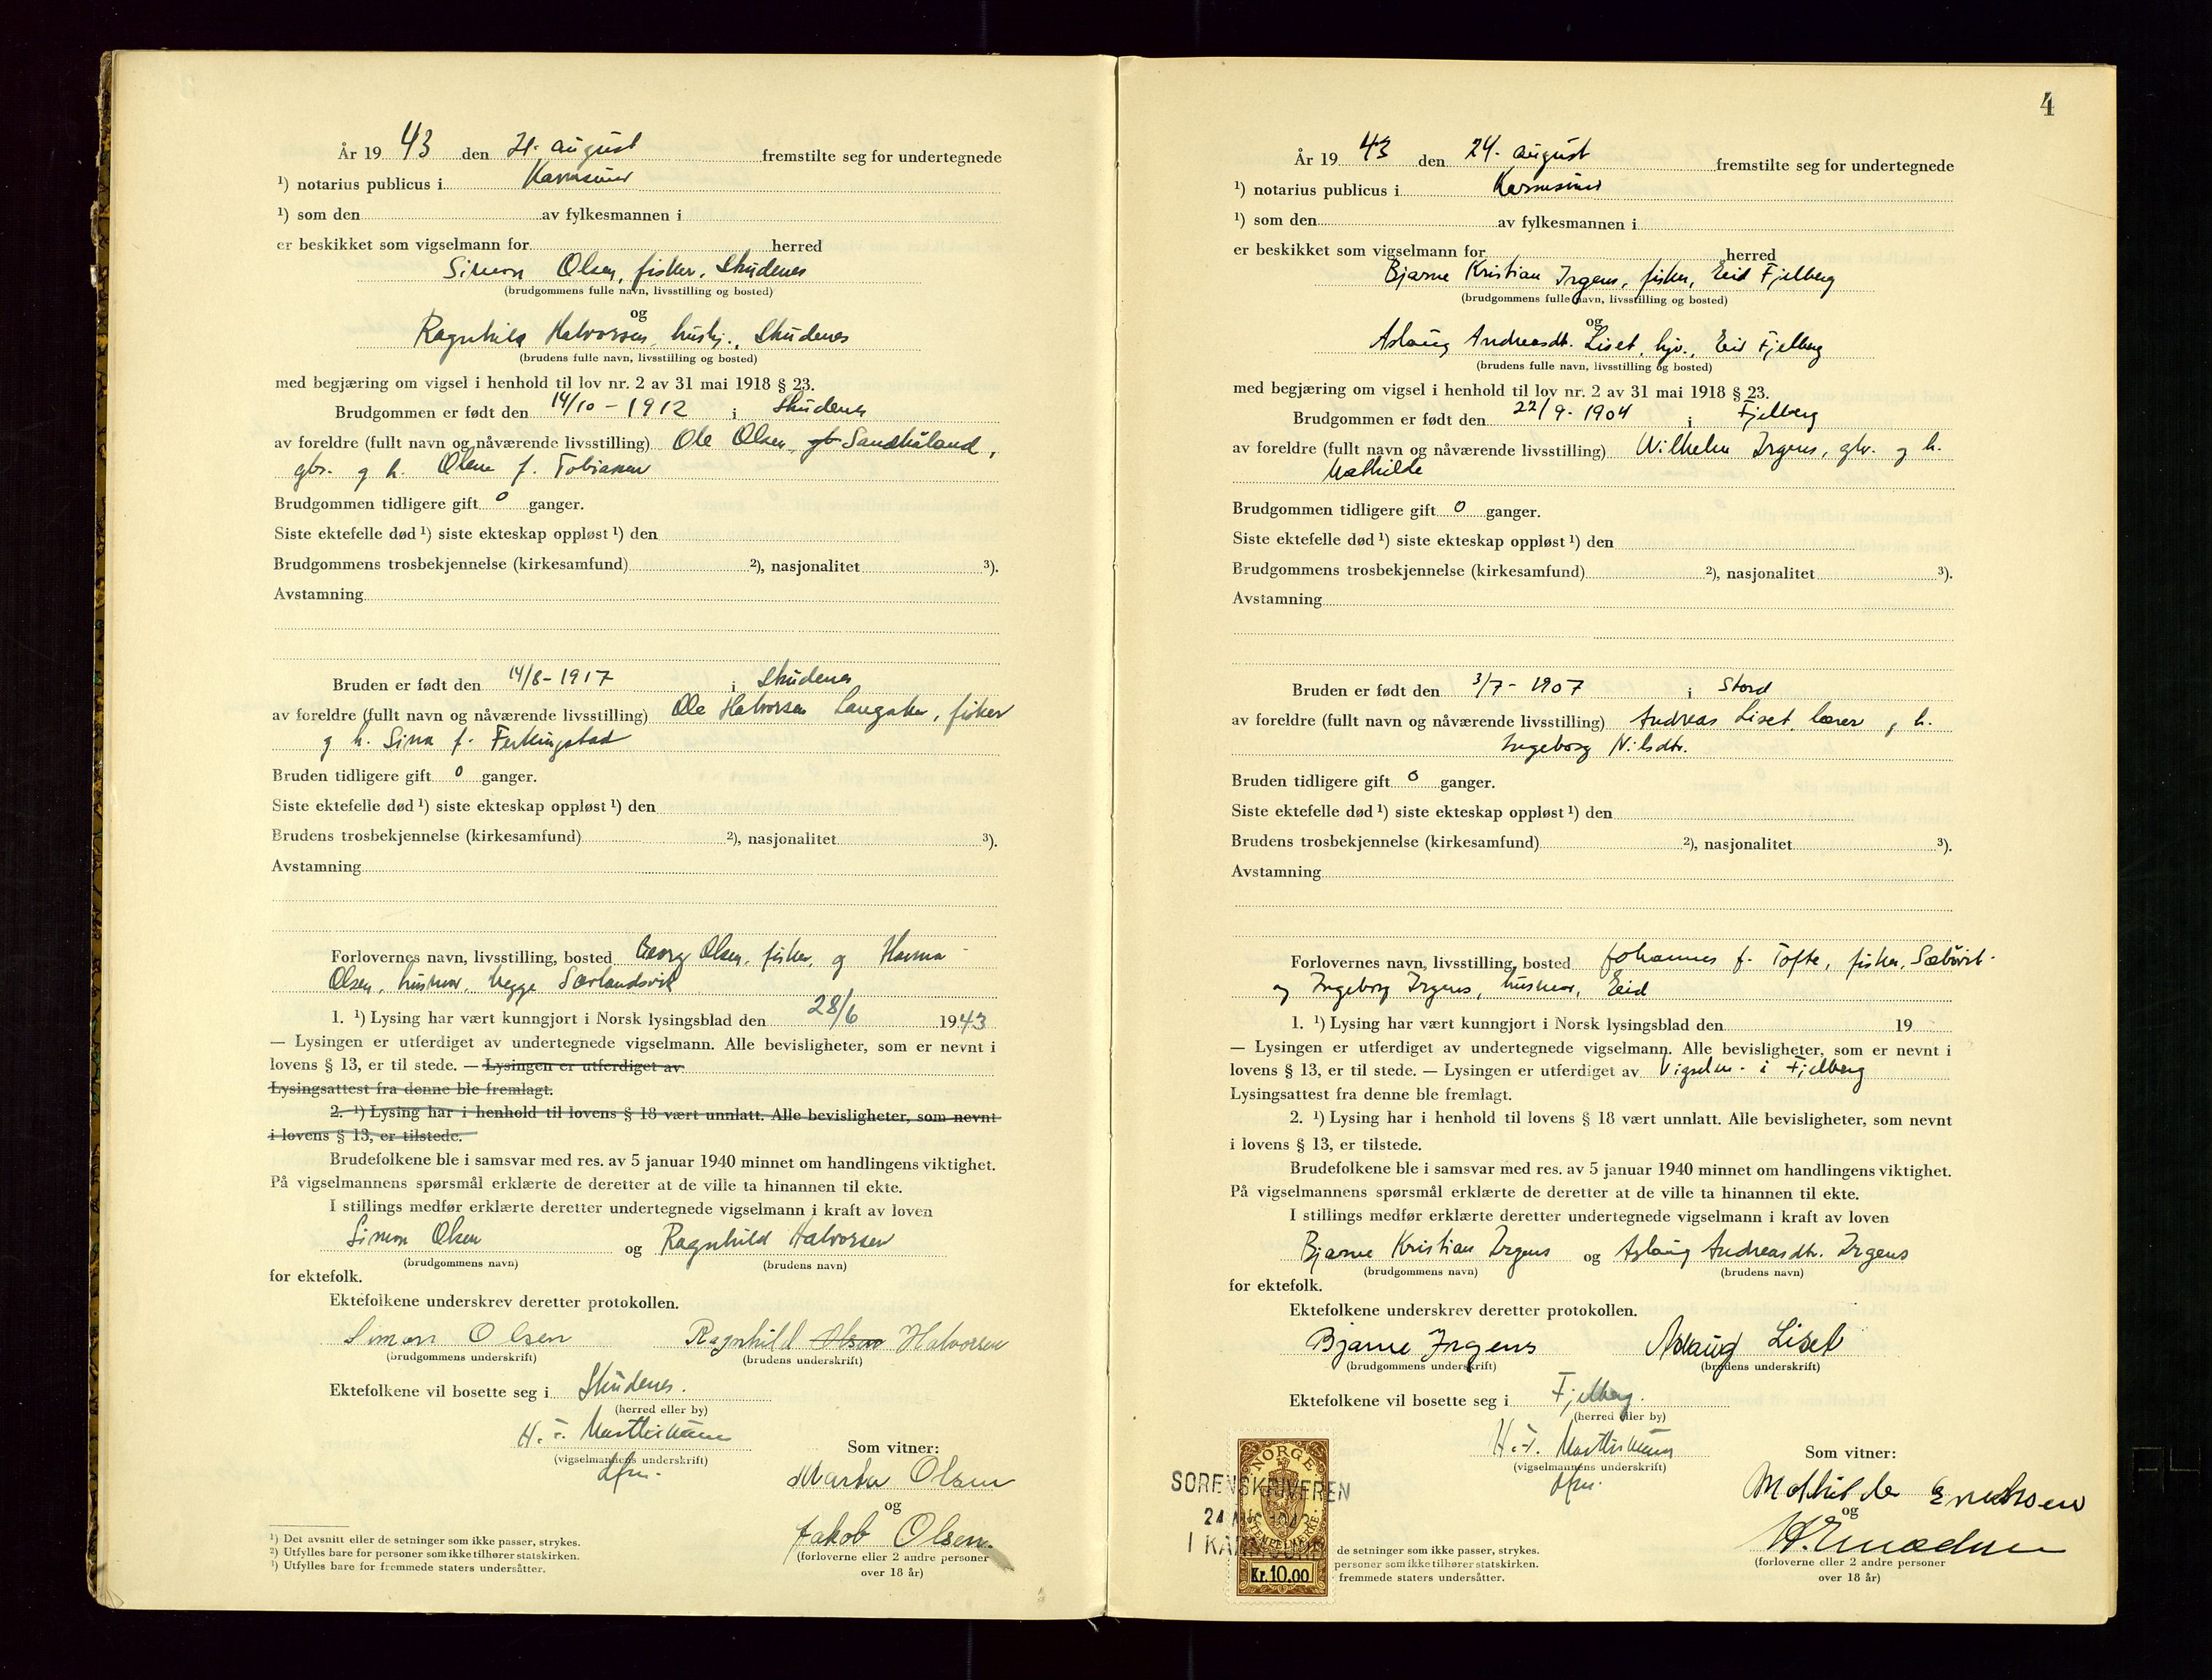 År 19 43 den 21. august fremstilte seg for undertegnede
¹) notarius publicus i Karmsund
¹) som den av fylkesmannen i
er beskikket som vigselmann for herred
Simon Olsen, fisker, Skudenes
(brudgommens fulle navn, livsstilling og bosted)
og
Ragnhild Halvorsen, hushj., Skudenes
(brudens fulle navn, livsstilling og bosted)
med begjæring om vigsel i henhold til lov nr. 2 av 31 mai 1918 § 23.
Brudgommen er født den 14/10 - 1912 i Skudenes
av foreldre (fullt navn og nåværende livsstilling) Ole Olsen, gb Sandhåland,
gbr. og h. Olene f. Tobiassen
Brudgommen tidligere gift 0 ganger.
Siste ektefelle død ¹) siste ekteskap oppløst ¹) den
Brudgommens trosbekjennelse (kirkesamfund) ²), nasjonalitet ³).
Avstamning
Bruden er født den 14/8 - 1917 i Skudenes
av foreldre (fullt navn og nåværende livsstilling) Ole Halvorsen Langåker, fisker
og h. Sina f. Ferkingstad
Bruden tidligere gift 0 ganger.
Siste ektefelle død ¹) siste ekteskap oppløst ¹) den
Brudens trosbekjennelse (kirkesamfund) ²), nasjonalitet ³).
Avstamning
Forlovernes navn, livsstilling, bosted Georg Olsen, fisker, og Hanna
Olsen, husmor, begge Sørlandsvik
1. ¹) Lysing har vært kunngjort i Norsk lysingsblad den 28/6 1943
— Lysingen er utferdiget av undertegnede vigselmann. Alle bevisligheter, som er nevnt i
lovens § 13, er til stede. — Lysingen er utferdiget av
Lysingsattest fra denne ble fremlagt.
2. ¹) Lysing har i henhold til lovens § 18 vært unnlatt. Alle bevisligheter, som nevnt
i lovens § 13, er tilstede.
Brudefolkene ble i samsvar med res. av 5 januar 1940 minnet om handlingens viktighet.
På vigselmannens spørsmål erklærte de deretter at de ville ta hinannen til ekte.
I stillings medfør erklærte deretter undertegnede vigselmann i kraft av loven
Simon Olsen og Ragnhild Halvorsen
(brudgommens navn) (brudens navn)
for ektefolk.
Ektefolkene underskrev deretter protokollen.
Simon Olsen Ragnhild Olsen Halvorsen
(brudgommens underskrift) (brudens underskrift)
Ektefolkene vil bosette seg i Skudenes.
(herred eller by)
(vigselmannens underskrift)
Som vitner:
Marta Olsen
og
Jakob Olsen
(forloverne eller 2 andre personer
over 18 år)
¹) Det avsnitt eller de setninger som ikke passer, strykes.
²) Utfylles bare for personer som ikke tilhører statskirken.
³) Utfylles bare for fremmede staters undersåtter.
4
År 19 43 den 24. august fremstilte seg for undertegnede
¹) notarius publicus i Karmsund
¹) som den av fylkesmannen i
er beskikket som vigselmann for herred
Bjarne Kristian Irgens, fisker, Eid Fjelberg
(brudgommens fulle navn, livsstilling og bosted)
og
Aslaug Andreasdt. Liset, hjv., Eid Fjelberg
(brudens fulle navn, livsstilling og bosted)
med begjæring om vigsel i henhold til lov nr. 2 av 31 mai 1918 § 23.
Brudgommen er født den 22/9 - 1904 i Fjelberg
av foreldre (fullt navn og nåværende livsstilling) Wilhelm Irgens, gbr. og h.
Mathilde
Brudgommen tidligere gift 0 ganger.
Siste ektefelle død ¹) siste ekteskap oppløst ¹) den
Brudgommens trosbekjennelse (kirkesamfund) ²), nasjonalitet ³).
Avstamning
Bruden er født den 3/7 - 1907 i Stord
av foreldre (fullt navn og nåværende livsstilling) Andreas Liset, lærer og h.
Ingeborg Nilsdtr.
Bruden tidligere gift 0 ganger.
Siste ektefelle død ¹) siste ekteskap oppløst ¹) den
Brudens trosbekjennelse (kirkesamfund) ²), nasjonalitet ³).
Avstamning
Forlovernes navn, livsstilling, bosted Johannes J. Tofte, fisker,
og Ingeborg Irgens, husmor, Eid
1. ¹) Lysing har vært kunngjort i Norsk lysingsblad den 19
— Lysingen er utferdiget av undertegnede vigselmann. Alle bevisligheter, som er nevnt i
lovens § 13, er til stede. — Lysingen er utferdiget av Vigselm. i Fjelberg
Lysingsattest fra denne ble fremlagt.
2. ¹) Lysing har i henhold til lovens § 18 vært unnlatt. Alle bevisligheter, som nevnt
i lovens § 13, er tilstede.
Brudefolkene ble i samsvar med res. av 5 januar 1940 minnet om handlingens viktighet.
På vigselmannens spørsmål erklærte de deretter at de ville ta hinannen til ekte.
I stillings medfør erklærte deretter undertegnede vigselmann i kraft av loven
Bjarne Kristian Irgens og Aslaug Andreasdtr. Irgens
(brudgommens navn) (brudens navn)
for ektefolk.
Ektefolkene underskrev deretter protokollen.
Bjarne Irgens Aslaug Liset
(brudgommens underskrift) (brudens underskrift)
Ektefolkene vil bosette seg i Fjelberg.
(herred eller by)
(vigselmannens underskrift)
Som vitner:
Mathilde
og
(forloverne eller 2 andre personer
over 18 år)
NORGE
STEMPELMERKE
Kr. 10.00
SORENSKRIVEREN
24 AUG 1943
I KARMSUND
de setninger som ikke passer, strykes.
personer som ikke tilhører statskirken.
fremmede staters undersåtter.